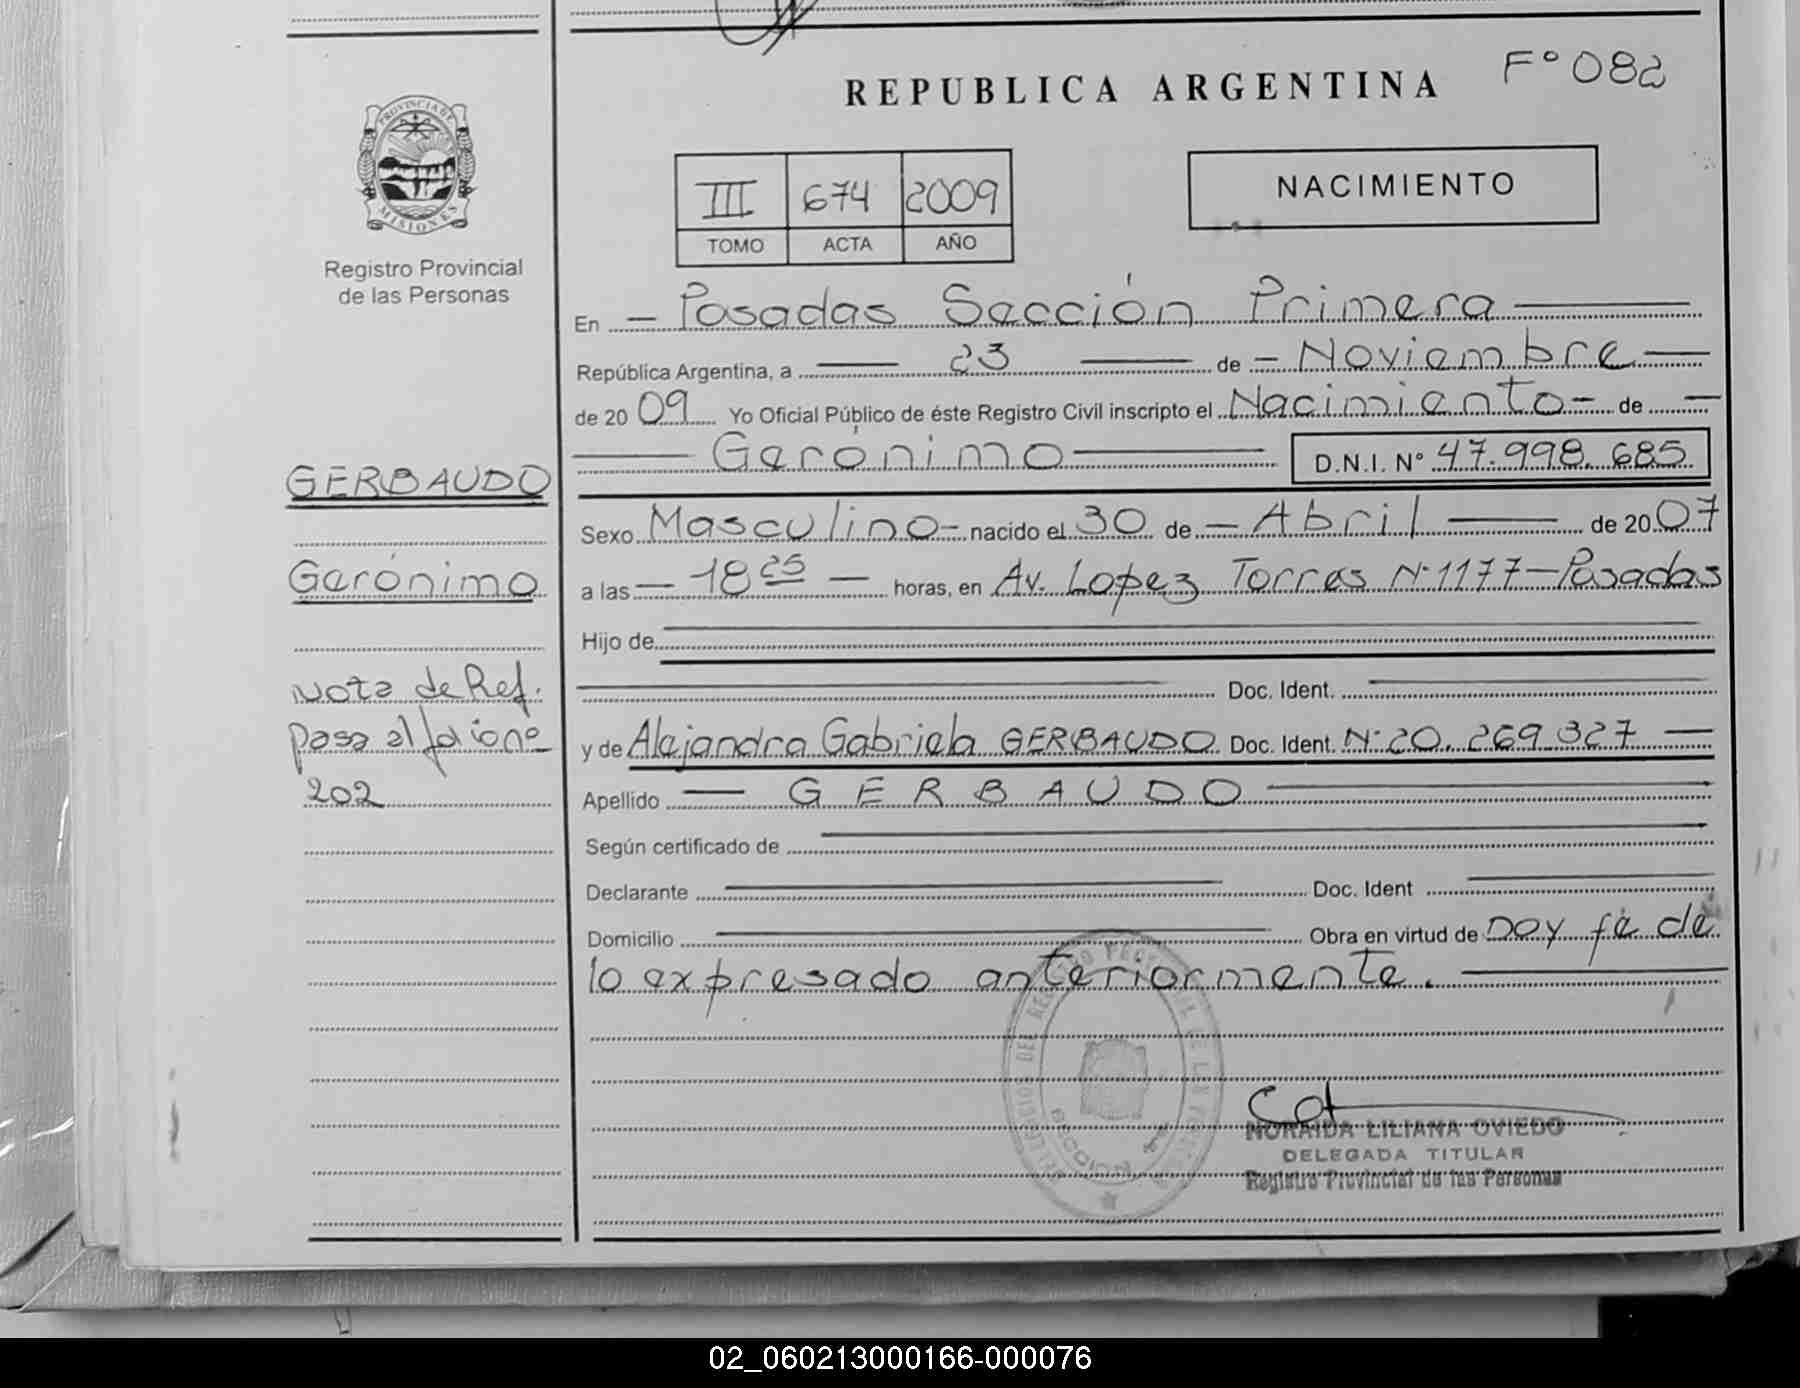 REPUBLICA ARGENTINA
Fº 082
PROVINCIA DE
MISIONES
Registro Provincial
de las Personas
III 674 2009
TOMO ACTA AÑO
NACIMIENTO
En - Posadas Sección Primera
República Argentina, a 23 de - Noviembre
de 2009 Yo Oficial Público de éste Registro Civil inscripto el Nacimiento - de -
Gerónimo D.N.I. Nº 47.998.685
Sexo Masculino - nacido el 30 de - Abril de 2007
a las - 18 25 - horas, en Av. Lopez Torres Nº 1177 - Posadas
Hijo de
Doc. Ident.
y de Alejandra Gabriela GERBAUDO Doc. Ident. Nº 20.269.327
Apellido - GERBAUDO
Según certificado de
Declarante Doc. Ident
Domicilio Obra en virtud de Doy fé de
lo expresado anteriormente.
GERBAUDO
Gerónimo
Nota de Ref.
pasa al folio nº
202
NORAIDA LILIANA OVIEDO
DELEGADA TITULAR
Registro Provincial de las Personas
02_060213000166-000076